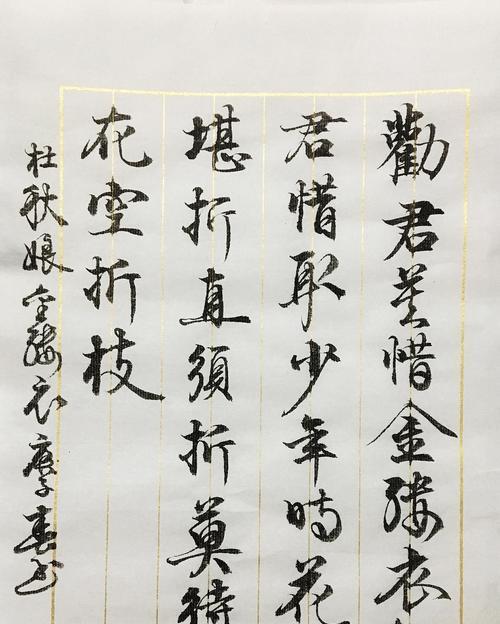 勸君莫惜金縷衣
君惜取少年時花
堪折直須折莫待
花空折枝
杜秋娘金縷衣庚子春书